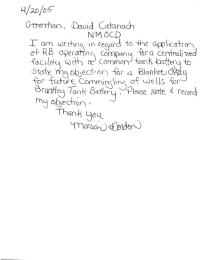 4/20/05
Attention: David Catanach
NMOCD
I am writing in regard to the application
of RB operating company for a centralized
facility with a common tank battery to
state my objection for a Blanket okay
for future Commingling of wells for
Brantley Tank Battery. Please Note & record
my objection.
Thank you